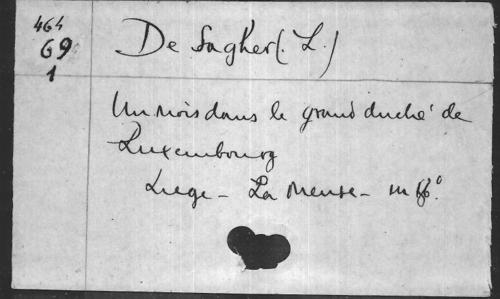 464
69
1
De Sagher (. L.)
Un mois dans le grand duché de
Luxembourg
Liege - La Meuse - in